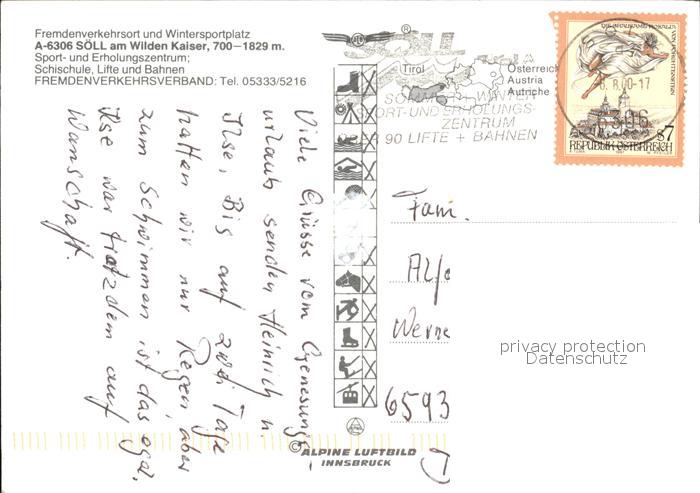 Fremdenverkehrsort und Wintersportplatz
A-6306 SÖLL am Wilden Kaiser, 700—1829 m.
Sport- und Erholungszentrum;
Schischule, Lifte und Bahnen
FREMDENVERKEHRSVERBAND: Tel. 05333/5216
Viele Grüsse vom Genesungs-
urlaub senden Heinrich u
Ilse, Bis auf zwei Tage
hatten wir nur Regen, aber
zum Schwimmen ist das egal,
Ilse war trotzdem auf
Wanschaft.
®
SÖLL
Tirol
Österreich
Austria
Autriche
SOMMER- WINTER
SPORT-UND ERHOLUNGS-
ZENTRUM
90 LIFTE + BAHNEN
6.8.00-17
6306
S7
REPUBLIK ÖSTERREICH
Fam.
Werne
6593
D
privacy protection
Datenschutz
© ALPINE LUFTBILD
INNSBRUCK